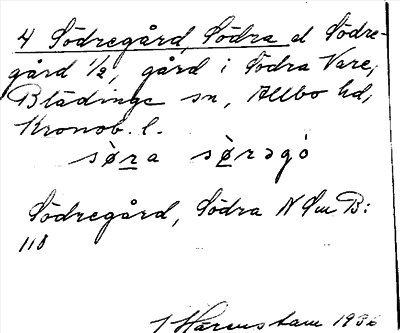 4 Södregård, Södra el Södre-
gård 1/2, gård i Södra Vare,
Blädinge sn, Allbo hd,
Kronob. l.
sø̀ra sø̀rəgo
Södregård, Södra N Sm B:
118
I Harmstam